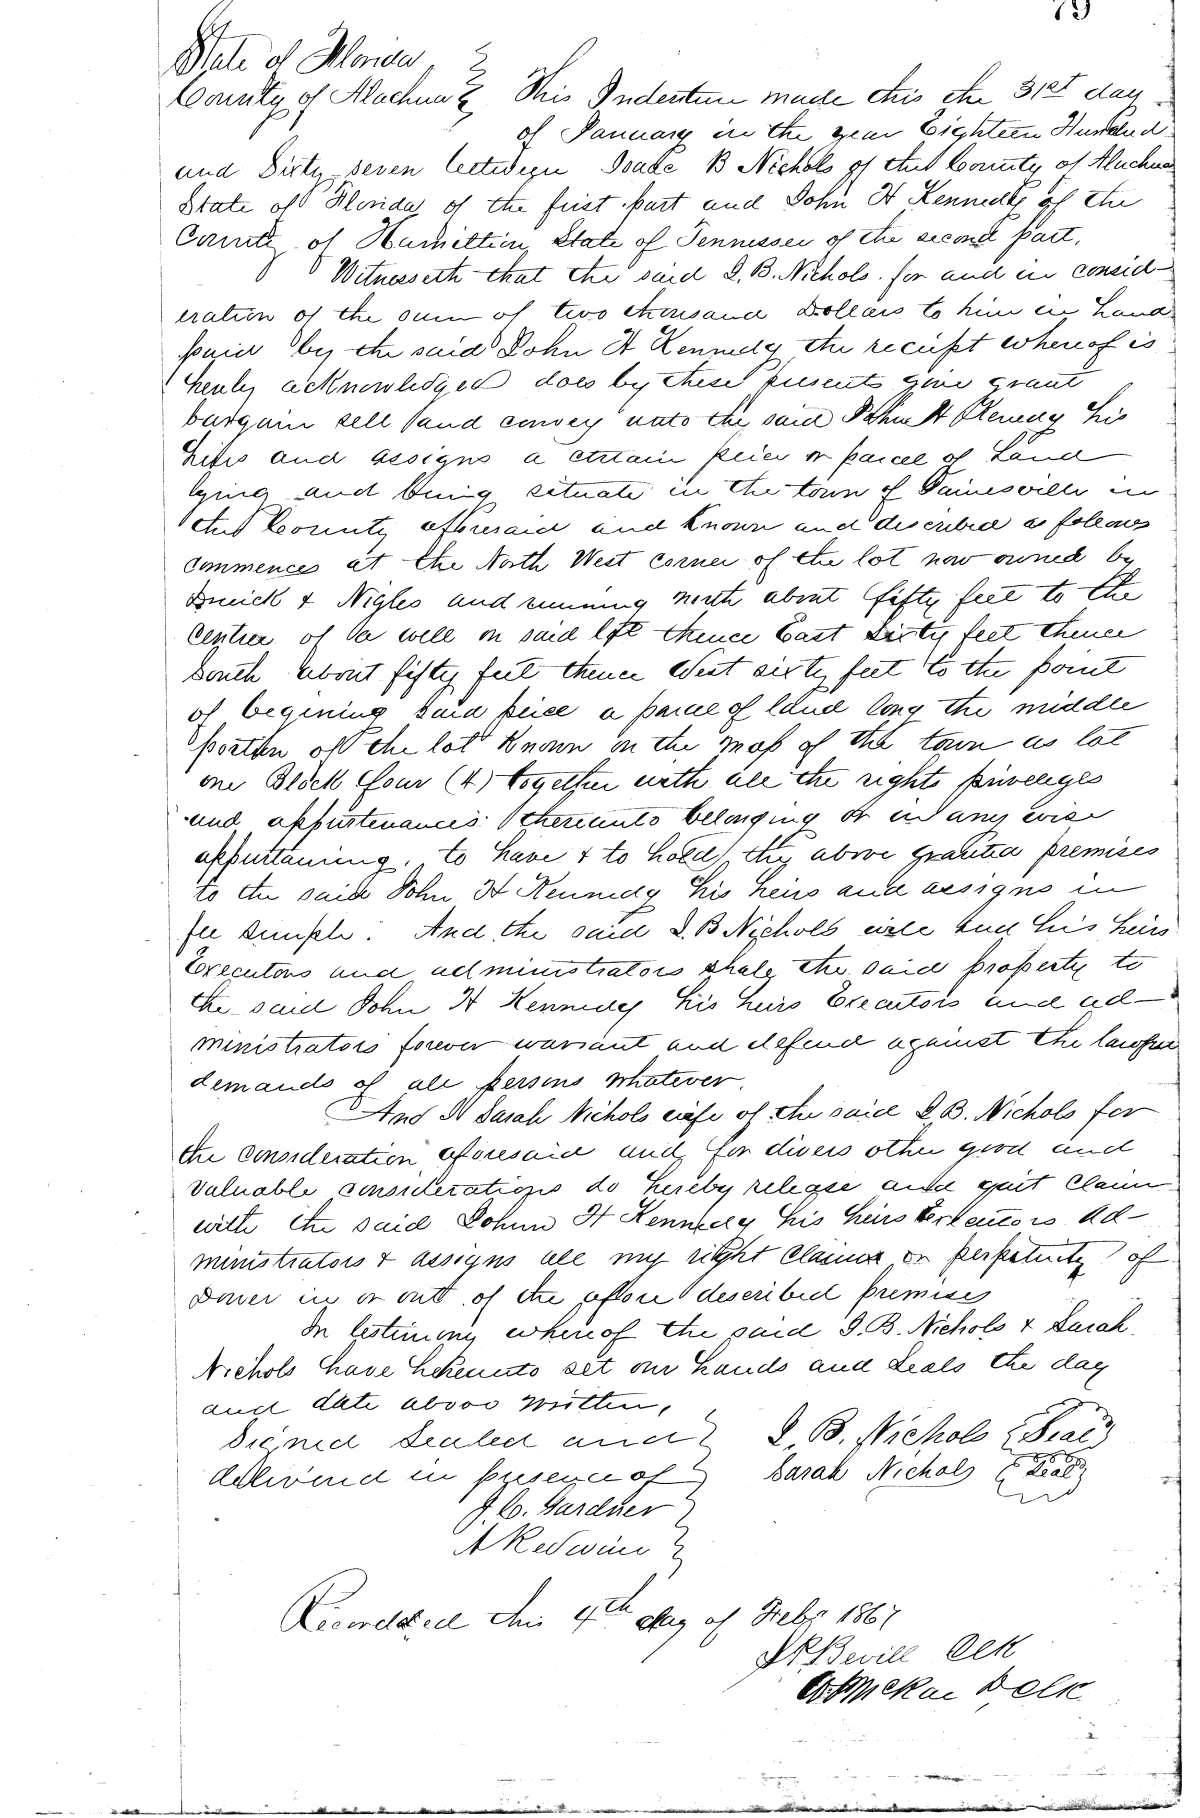 79
State of Florida
County of Alachua This Indenture made this the 31st day
of January in the year Eighteen Hundred
and Sixty seven between Isaac B Nichols of the County of Alachua
State of Florida of the first part and John H Kennedy of the
County of Hamilton State of Tennessee of the second part.
Witnesseth that the said I. B. Nichols for and in consid-
eration of the sum of two thousand Dollars to him in hand
paid by the said John H Kennedy the receipt whereof is
hereby acknowledged does by these presents give grant
bargain sell and convey unto the said John H Kennedy his
heirs and assigns a certain peice or parcel of Land
lying and being situate in the town of Gainesville in
the County aforesaid and known and described as follows
commences at the North West corner of the lot now owned by
& Nigles and running north about fifty feet to the
center of a well on said lot thence East sixty feet thence
South about fifty feet thence West sixty feet to the point
of begining said peice a parcel of land long the middle
portion of the lot known on the map of the town as lot
one Block four (4) together with all the rights priveleges
and appurtenances thereunto belonging or in any wise
appurtaining. to have & to hold the above granted premises
to the said John H Kennedy his heirs and assigns in
fee simple. And the said I. B Nichols will and his heirs
Executors and administrators shall the said property to
the said John H Kennedy his heirs Executors and ad-
ministrators forever warrant and defend against the lawful
demands of all persons whatever.
And I Sarah Nichols wife of the said I. B. Nichols for
the consideration aforesaid and for divers other good and
valuable considerations do hereby release and quit claim
with the said John H Kennedy his heirs Executors ad-
ministrators & assigns all my right claims or perpetuity of
Dower in or out of the afore described premises
In testimony whereof the said I. B. Nichols & Sarah
Nichols have hereunto set our hands and Seals the day
and date above written.
Signed Sealed and I. B. Nichols Seal
delivered in presence of Sarah Nichols Seal
J. C. Gardner
Recorded this 4th day of Feby 1867
Bevill Clk
D Clk